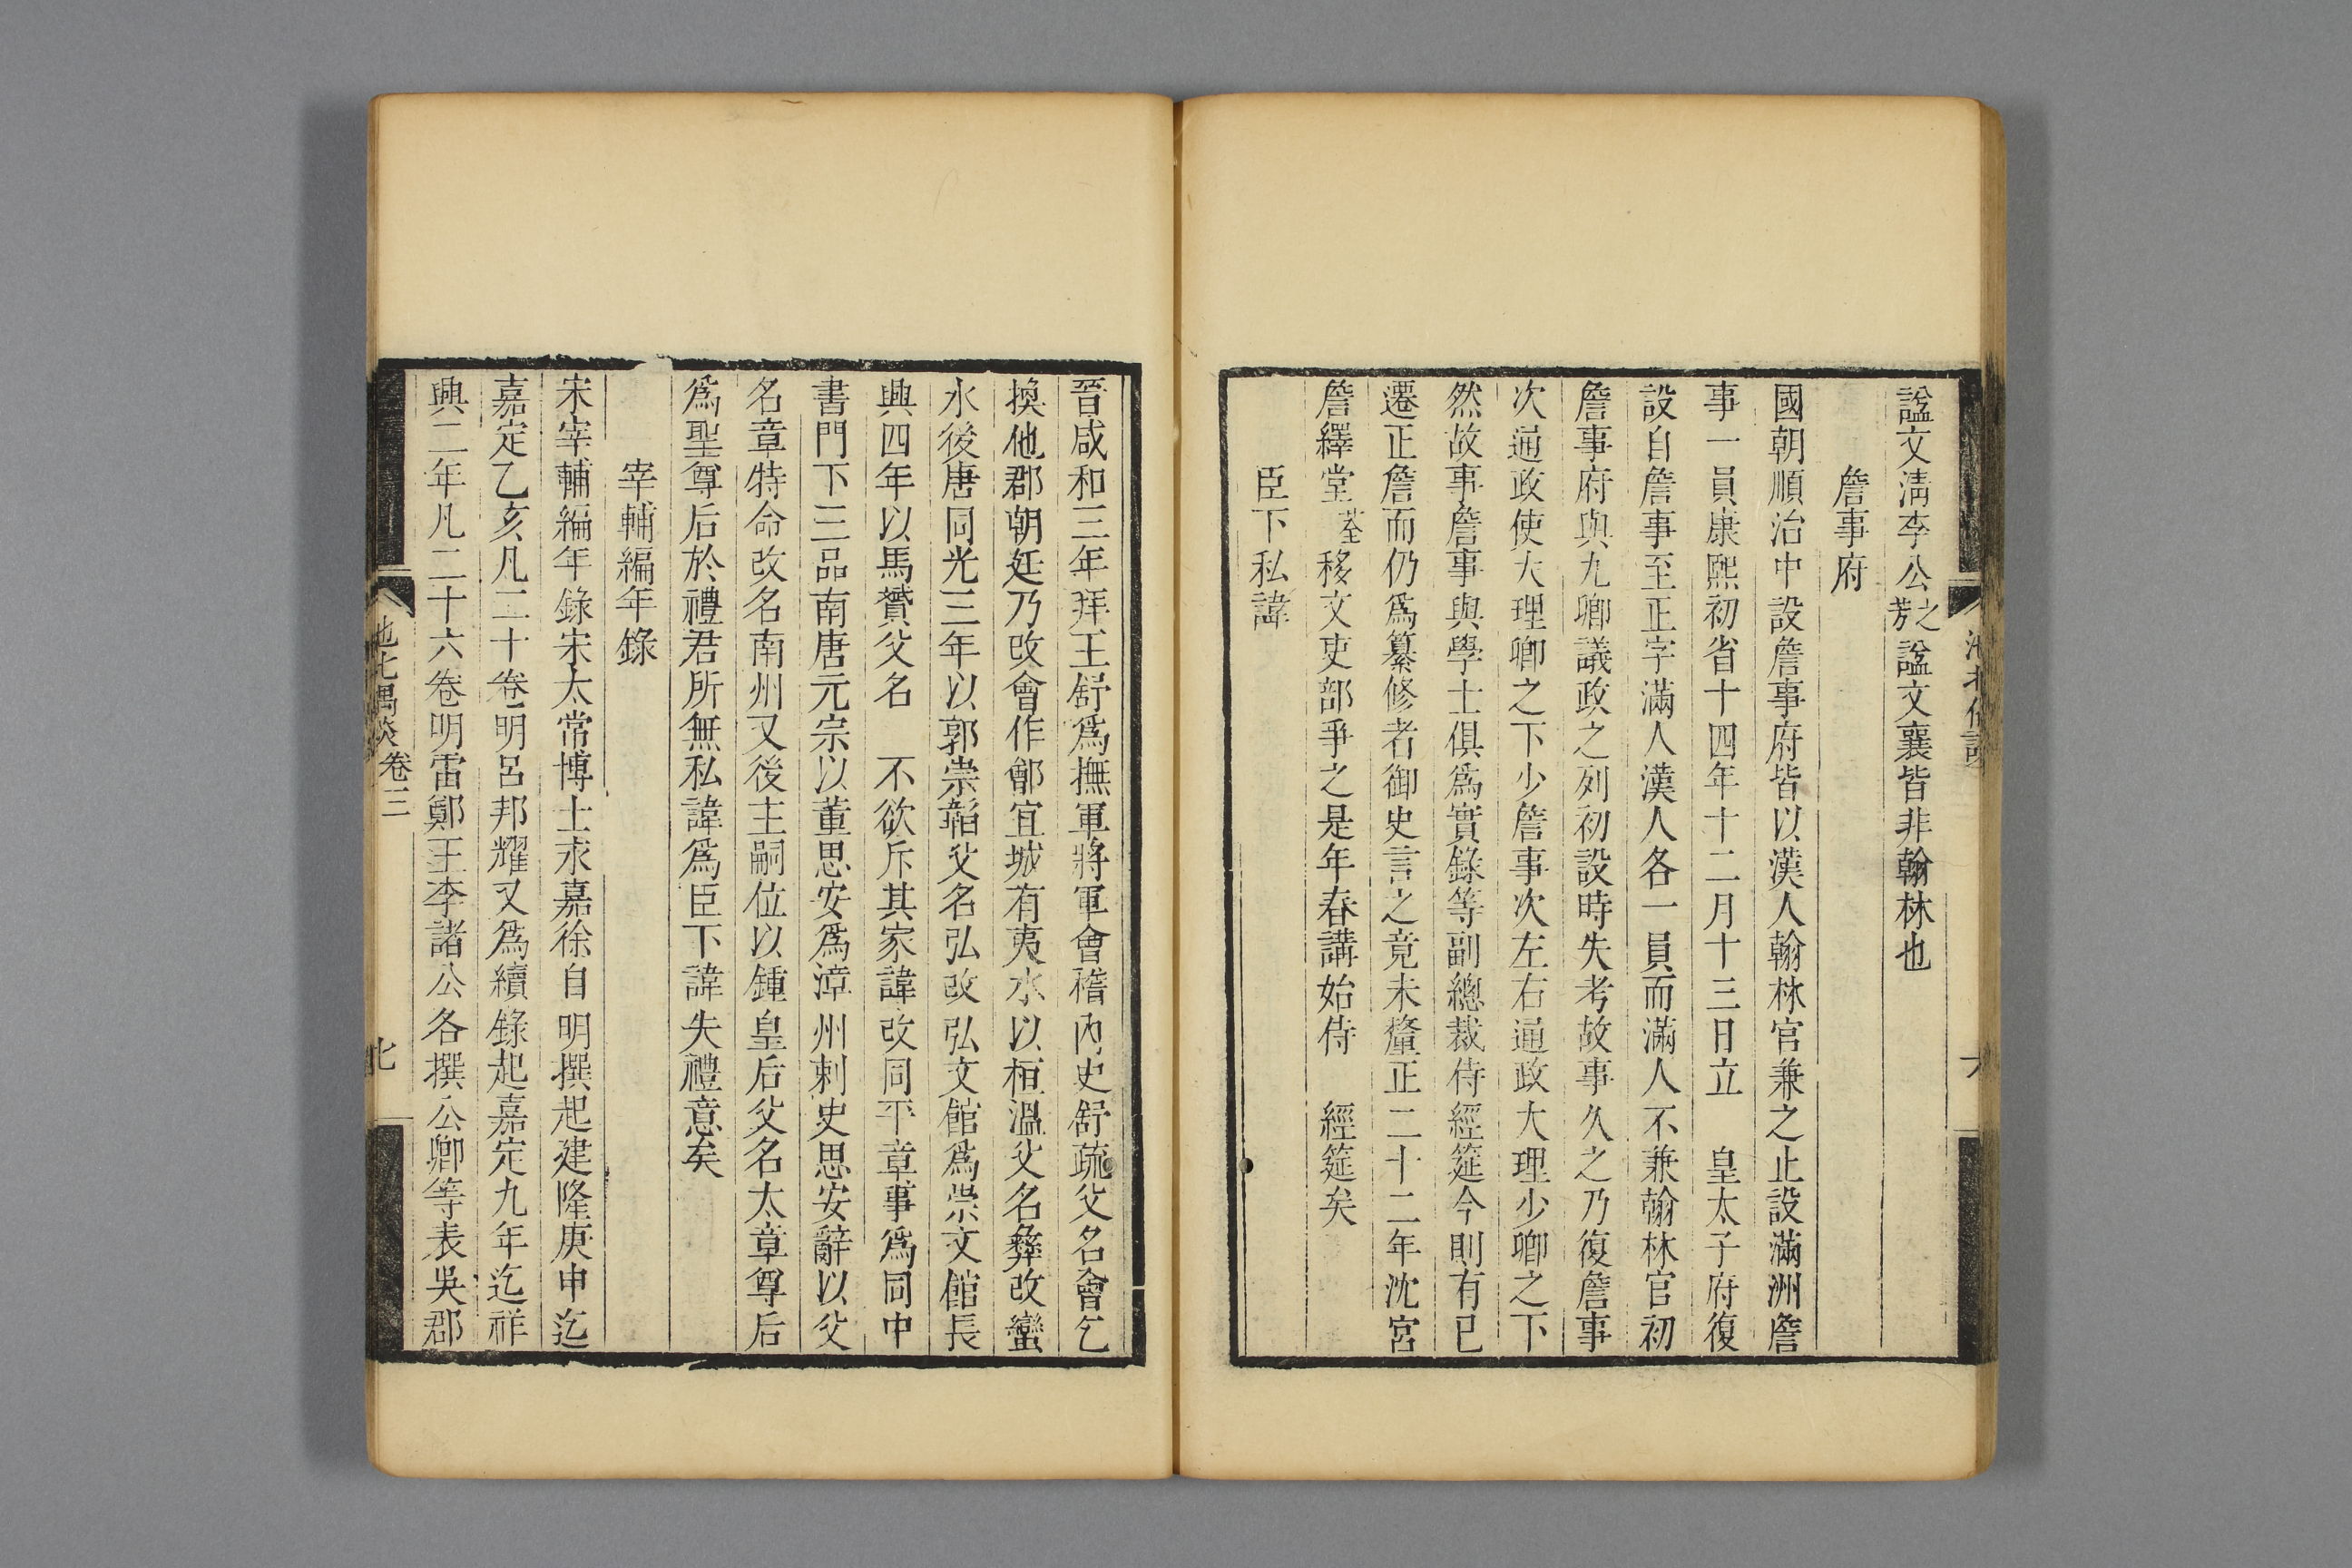 諡文淸李公之芳諡文襄皆非翰林也
詹事府
國朝順治中設詹事府皆以漢人翰林官兼之止設滿洲詹
事一員康熙初省十四年十二月十三日立　皇太子府復
設自詹事至正字滿人漢人各一員而滿人不兼翰林官初
詹事府與九卿議政之列初設時失考故事久之乃復詹事
次通政使大理卿之下少詹事次左右通政大理少卿之下
然故事詹事與學士俱爲實錄等副總裁侍經筵今則有已
遷正詹而仍爲纂修者御史言之竟未釐正二十二年沈宮
詹繹堂荃移文吏部爭之是年春講始侍　經筵矣
臣下私諱
晉咸和三年拜王舒爲撫軍將軍會稽內史舒疏父名會乞
換他郡朝廷乃改會作鄶宜城有夷水以桓溫父名彝改蠻
水後唐同光三年以郭崇韜父名弘改弘文館爲崇文館長
興四年以馬贇父名　不欲斥其家諱改同平章事爲同中
書門下三品南唐元宗以董思安爲漳州刺史思安辭以父
名章特命改名南州又後主嗣位以鍾皇后父名太章尊后
爲聖尊后於禮君所無私諱爲臣下諱失禮意矣
宰輔編年錄
宋宰輔編年錄宋太常博士永嘉徐自明撰起建隆庚申迄
嘉定乙亥凡二十卷明呂邦耀又爲續錄起嘉定九年迄祥
興二年凡二十六卷明雷鄭王李諸公各撰公卿等表吳郡
池北偶談 卷三